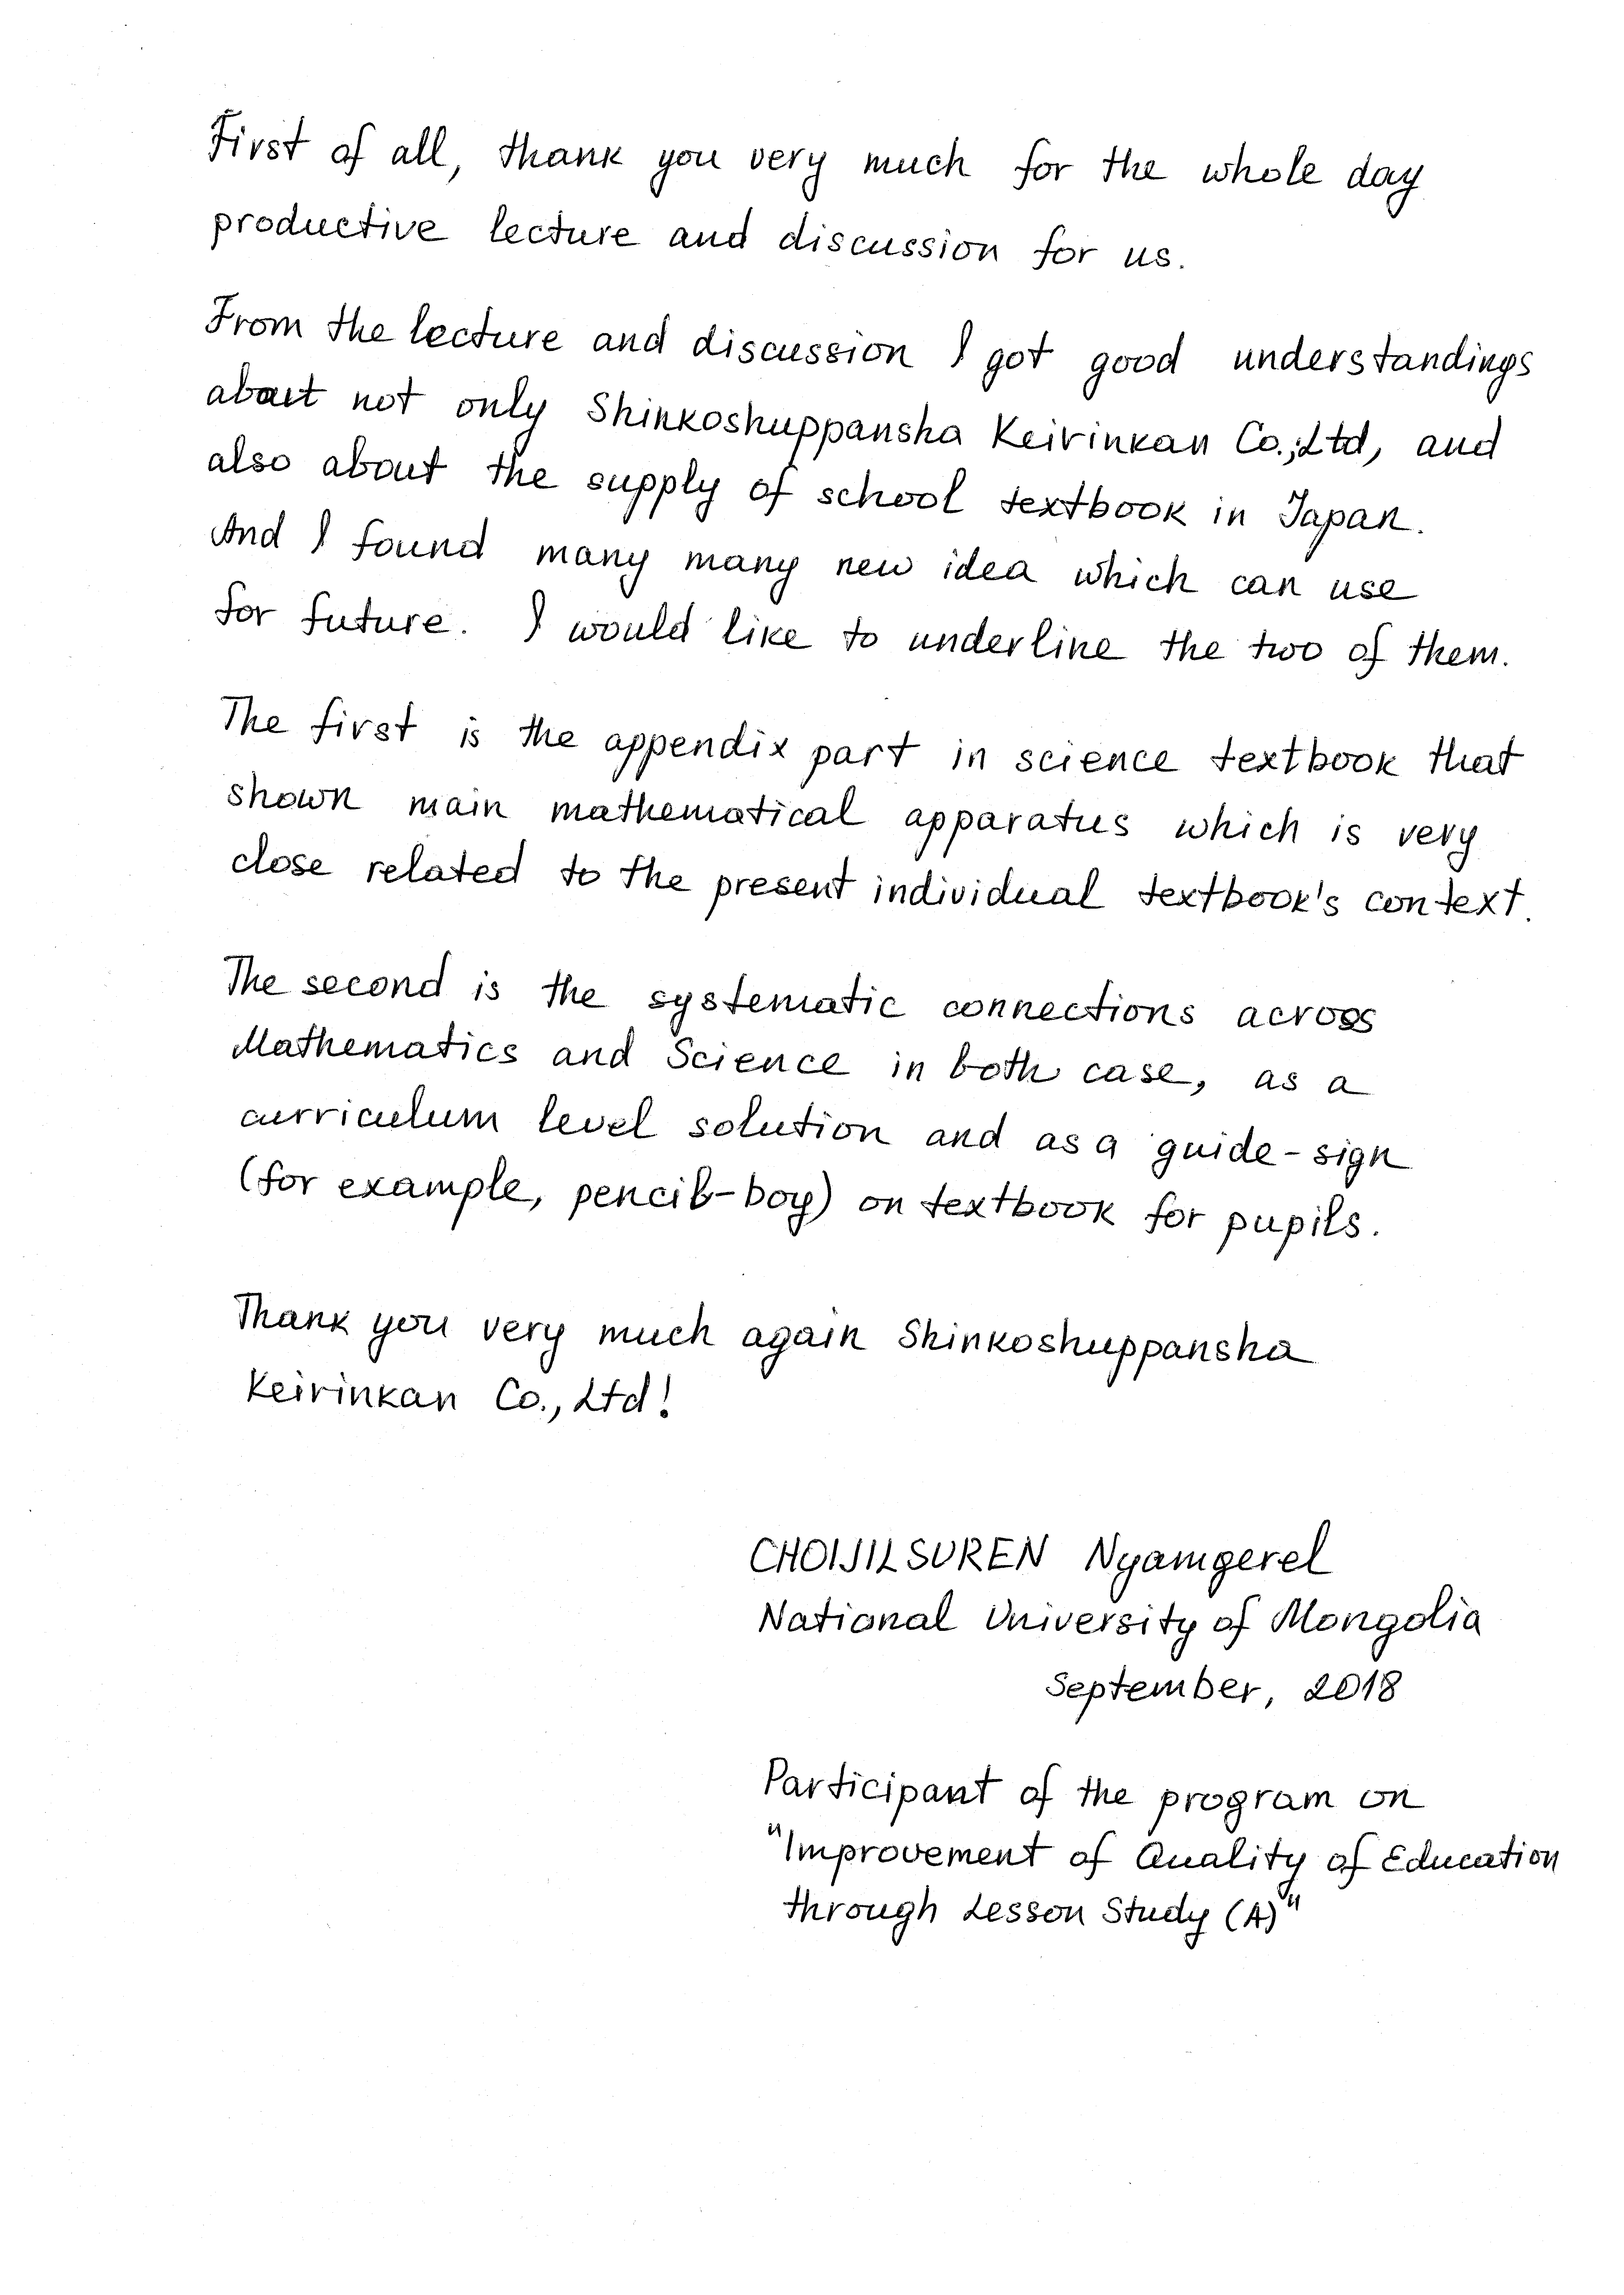 First of all, thank you very much for the whole day
productive lecture and discussion for us.
From the lecture and discussion I got good understandings
about not only Shinkoshuppansha Keirinkan Co.,Ltd, and
also about the supply of school textbook in Japan.
And I found many many new idea which can use
for future. I would like to underline the two of them.
The first is the appendix part in science textbook that
shown main mathematical apparatus which is very
close related to the present individual textbook's context.
The second is the systematic connections across
Mathematics and Science in both case, as a
curriculum level solution and as a guide-sign
(for example, pencil-boy) on textbook for pupils.
Thank you very much again Shinkoshuppansha
Keirinkan Co., Ltd!
CHOIJILSUREN Nyamgerel
National University of Mongolia
September, 2018
Participant of the program on
"Improvement of Quality of Education
through Lesson Study (A)"